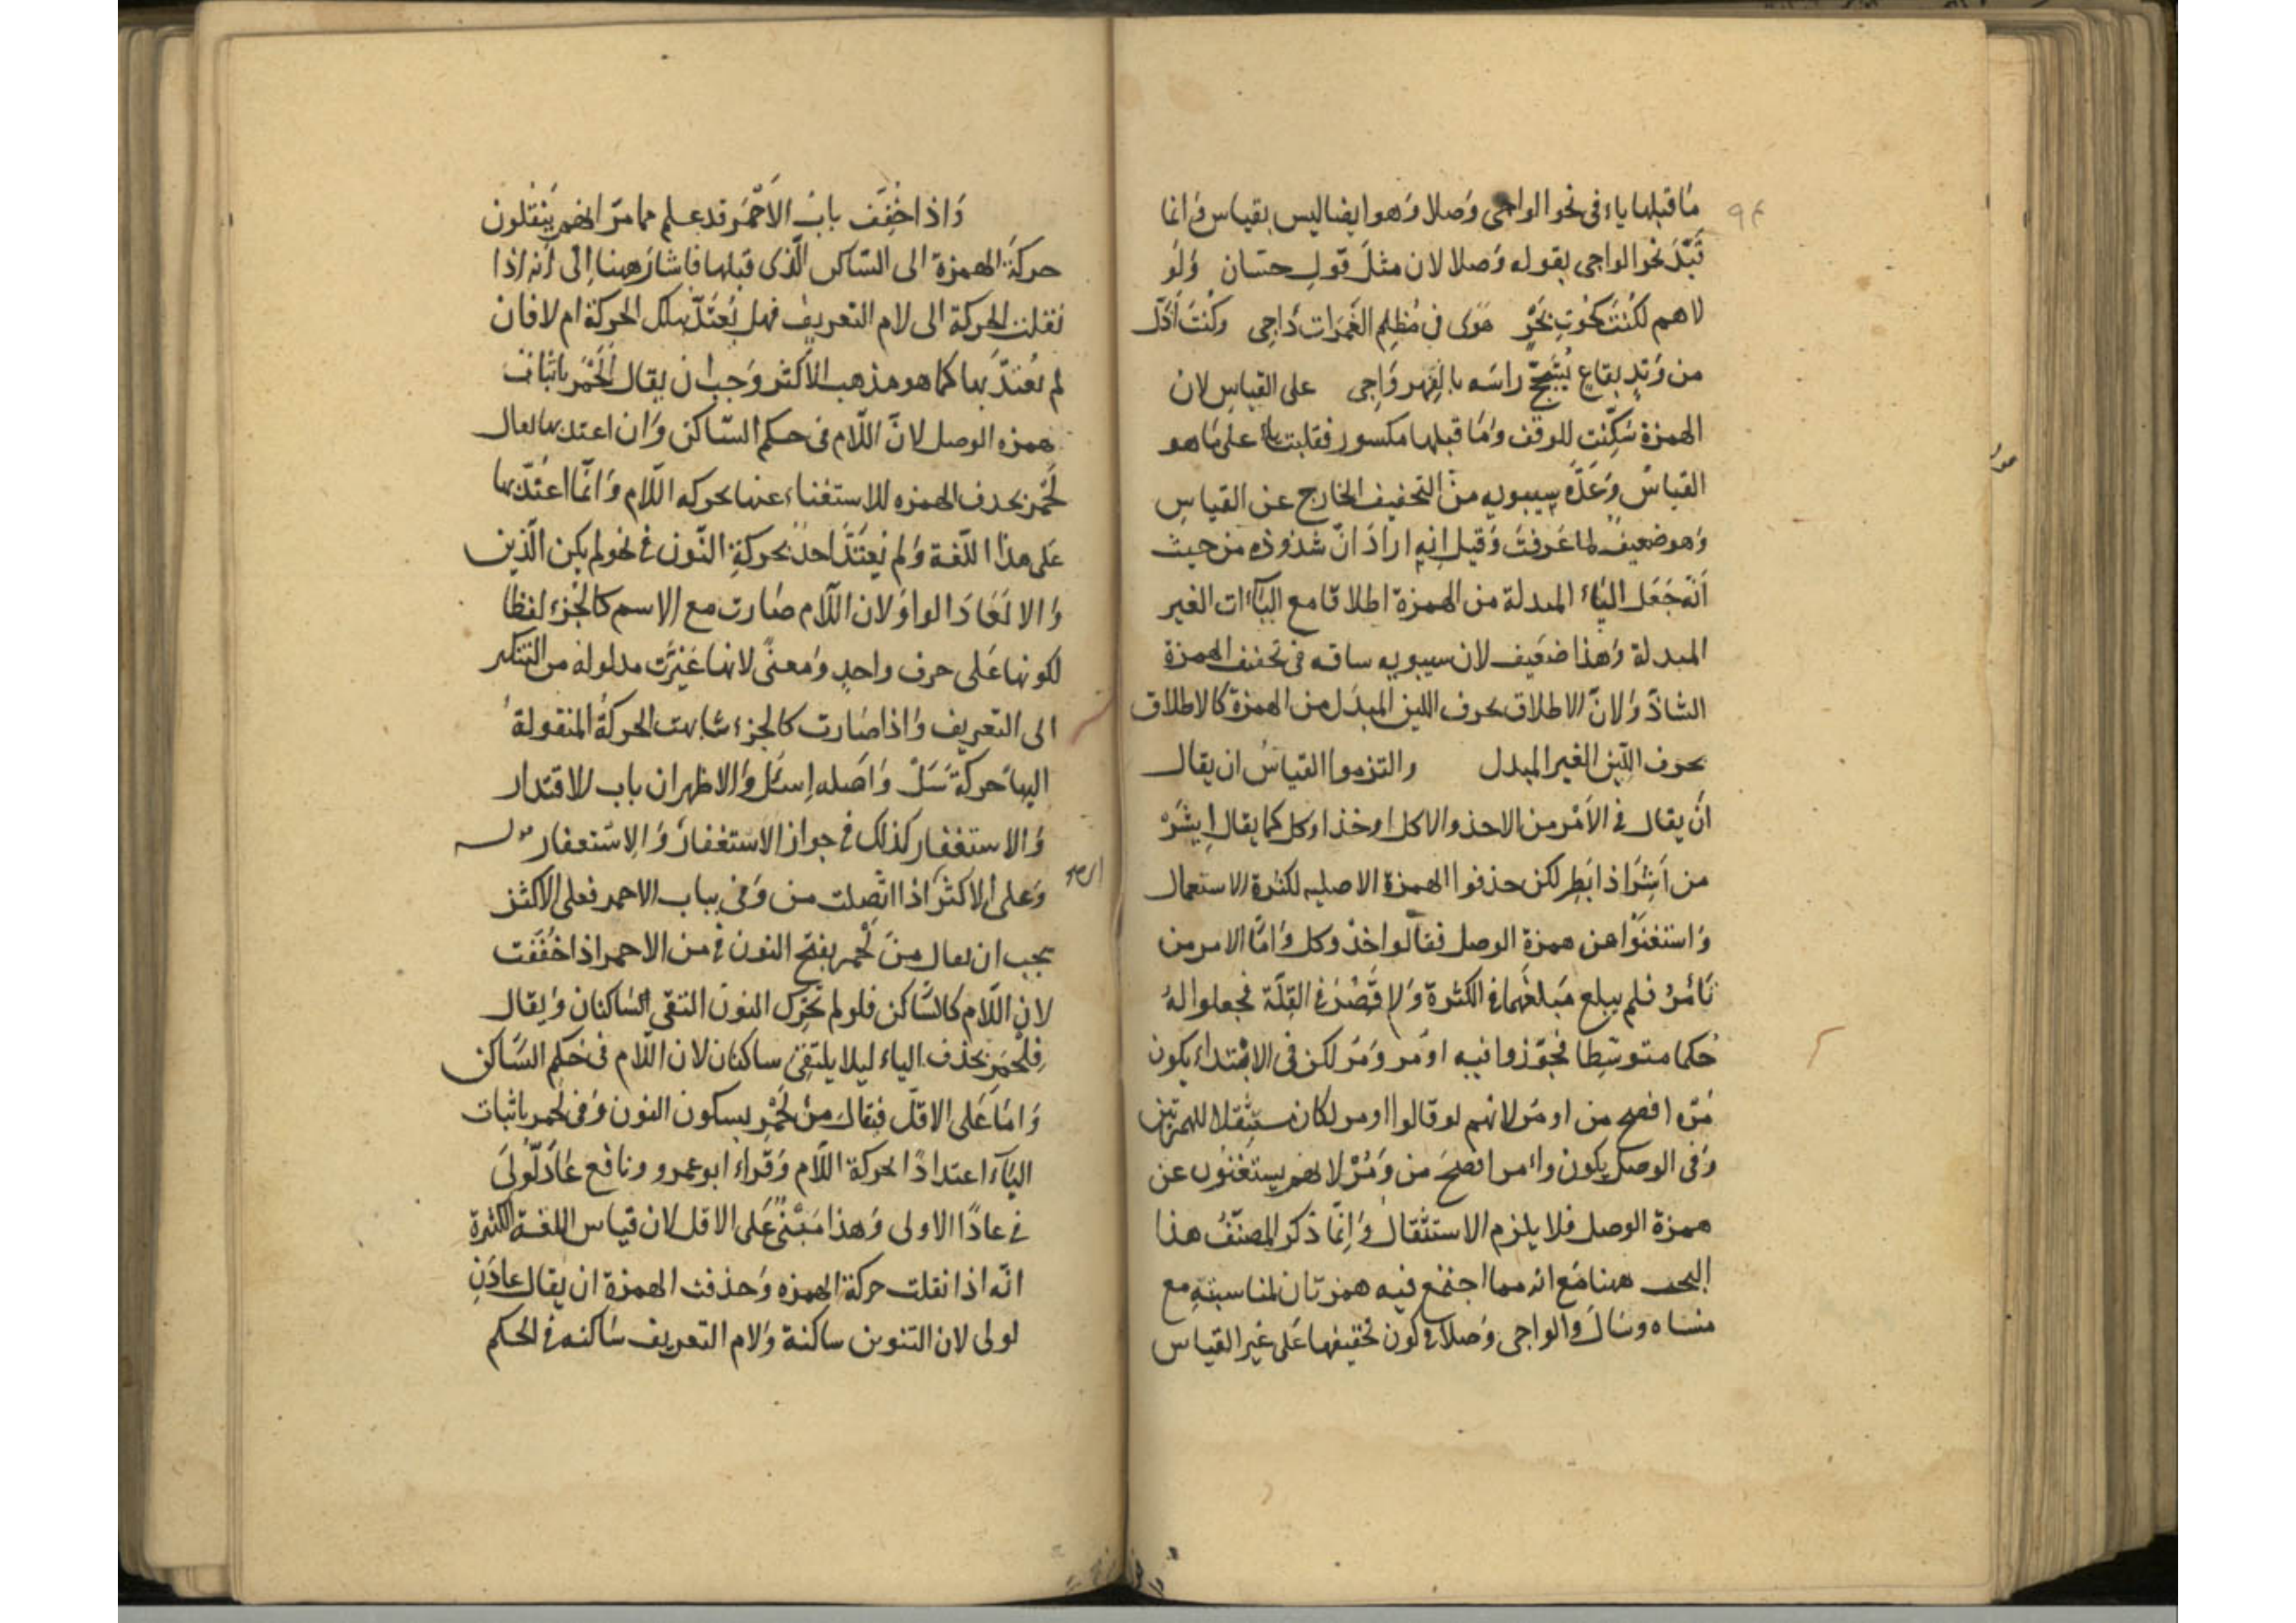 ما قبلها ياء فى نحو الواجى وصلا وهو ايضا ليس بقياس وانما
قيّد نحو الواجى بقوله وصلا لان مثل قول حسان ولو
لا هم لكنت كحوت بحر هوى فى مظلم الغمرات داجى وكنت أذل
من وتد بقاع يشجج راسه بالفهر واجى على القياس لان
الهمزة سكنت للوقف وما قبلها مكسور فقلبت ياء على ما هو
القياس وعدّه سيبويه من التخفيف الخارج عن القياس
وهو ضعيف لما عرفت وقيل انه اراد انّ شذوذه من حيث
انه جعل الياء المبدلة من الهمزة اطلاقا مع الياآت الغير
المبدلة وهذا ضعيف لان سيبويه ساقه فى تخفيف الهمزة
الشاذ ولانّ الاطلاق بحرف اللين المبدل من الهمزة كالاطلاق
بحرف اللين الغير المبدل والتزموا القياس ان يقال
ان يقال فى الأمر من الاخذ والاكل اوخذ اوكل كما يقال ايشر
من أشر اذا بطر لكن حذفوا الهمزة الاصليه لكثرة الاستعمال
واستغنوا عن همزة الوصل فقالوا خذ وكل وامّا الامر من
تأمر فلم يبلع مبلغهما فى الكثرة ولا قصر فى القلّة فجعلوا له
حكما متوسّطا فجوّزوا فيه اومر ومر لكن فى الابتداء يكون
مره افصح من اومر لانهم لو قالوا اومر لكان مستثقلا للهمزتين
وفى الوصل يكون وامر افصح من ومر لانهم يستغنون عن
همزة الوصل فلا يلزم الاستثقال وانّما ذكر المصنّف هذا
البحث ههنا مع انه مما اجتمع فيه همزتان لمناسبته مع
منساه وسال والواجى وصلا فى كون تخفيفها على غير القياس
واذا خفّف باب الأحمر قد علم مما مرّ انهم ينقلون
حركة الهمزة الى السّاكن الّذى قبلها فاشار ههنا الى أنه اذا
نقلت الحركة الى لام التعريف فهل يعتدّ بتلك الحركة ام لا فان
لم يعتدّ بها كما هو مذهب الأكثر وجب ان يقال الحمر باثبات
همزه الوصل لانّ اللّام فى حكم السّاكن وان اعتد بها يقال
لحمر بحدف الهمزه للاستغناء عنها بحركه اللّام وانّما اعتدّ بها
على هذا اللّغة ولم يعتدّ احد بحركة النّون فى نحو لم يكن الّذين
والا لعاد الواو لان اللّام صارت مع الاسم كالجزء لفظا
لكونها على حرف واحد ومعنىً لانها غيّرت مدلوله من التنكير
الى التعريف واذا صارت كالجزء شابهت الحركة المنقولة
اليها حركة سل واصله اسئل والاظهر ان باب الاقتدار
والاستغفار كذلك فى جواز الاستغفار والاستغفار
وعلى الاكثر اذا اتّصلت من وفى بباب الاحمر فعلى الاكثر
يجب ان يعال من لحمر بفتح النون فى من الاحمر اذا خففت
لان اللّام كالسّاكن فلو لم تحرك النون التقى السّاكنان ويقال
فلحمر بحذف الياء ليلا يلتقى ساكنان لان اللّام فى حكم السّاكن
وامّا على الاقلّ فيقال من لحمر بسكون النون وفى لحمر باثبات
الياء اعتدادًا لحركة اللّام وقراء ابو عمرو ونافع عادلّولى
فى عادًا الاولى وهذا مبنىّ على الاقل لان قياس اللغة الكثيرة
انّه اذا نقلت حركة الهمزه وحذفت الهمزة ان يقال عادن
لولى لان التنوين ساكنة ولام التعريف ساكنه فى الحكم